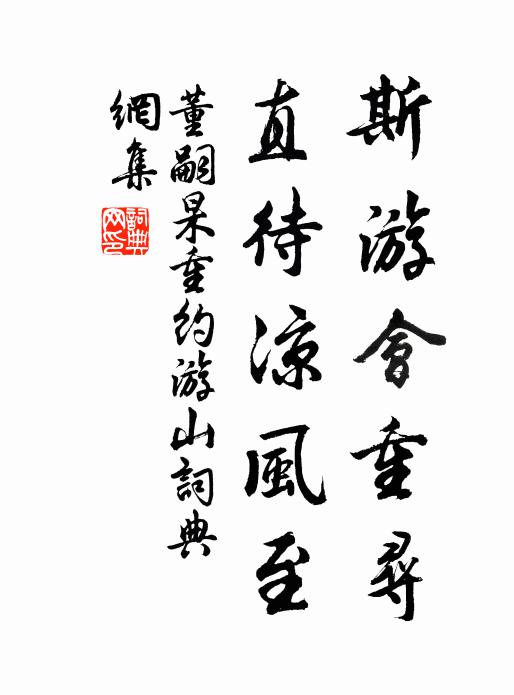 斯游會重尋
直待涼風至
董嗣杲重約游山詞典
網集
詞典網印